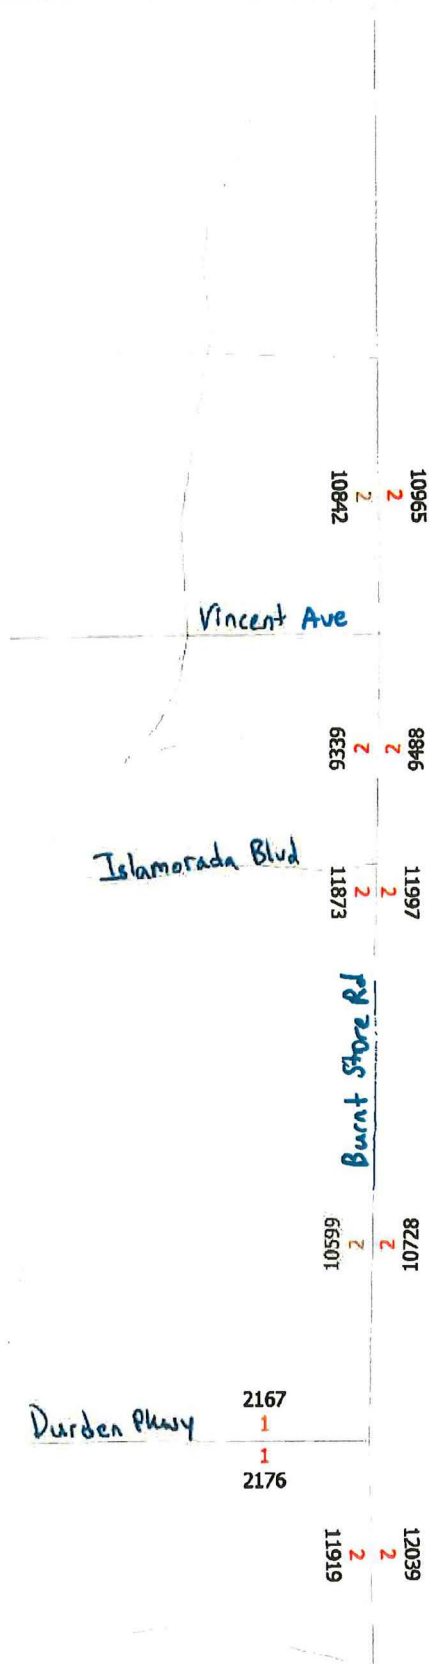 10965
2
2
10842
Vincent Ave
9488
2
2
9339
Islamorada Blvd
11997
2
2
11873
Burnt Store Rd
10728
2
2
10599
2167
1
Durden Pkwy
1
2176
12039
2
2
11919